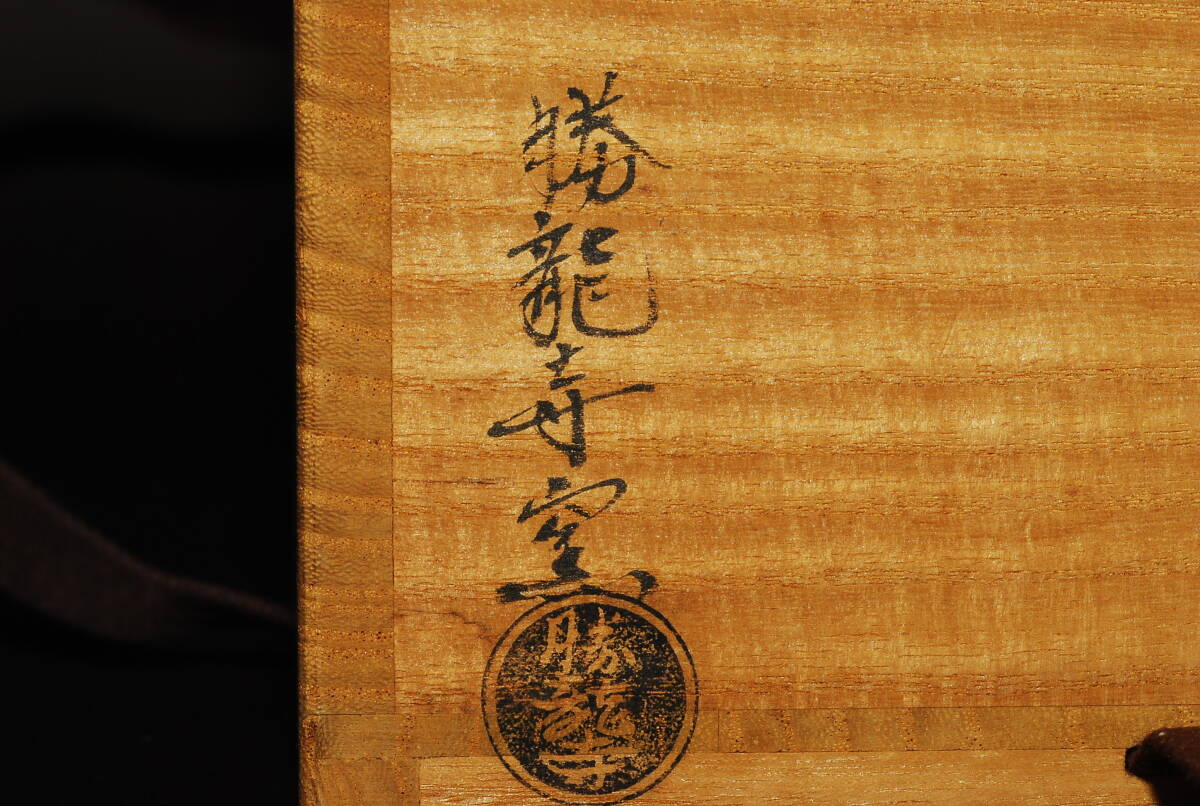 勝龍寺窯
勝龍寺